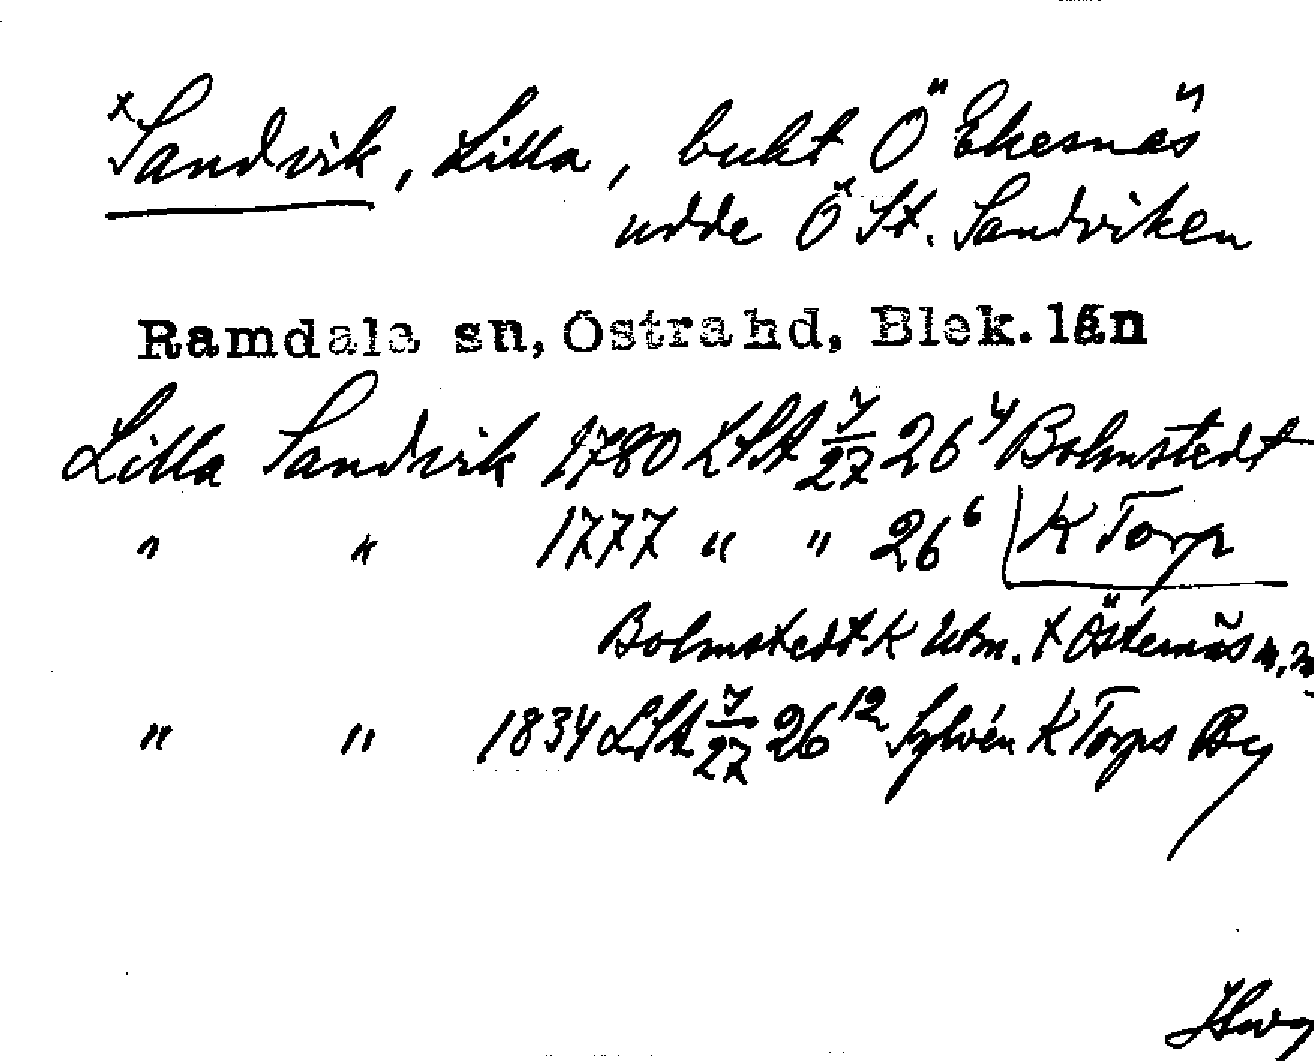 x Sandvik, Lilla, bukt Ö Ekesnäs
udde Ö St. Sandviken
Ramdala sn, Östra hd, Blek. län
Lilla Sandvik 1780 LSA 7/27 26⁴ Bolmstedt
" " 1777 " " 26⁶ K Torp
Bolmstedt K Utm. t Östernäs m.m
" " 1834 LSA 7/27 26¹² Sylvén K Torps By